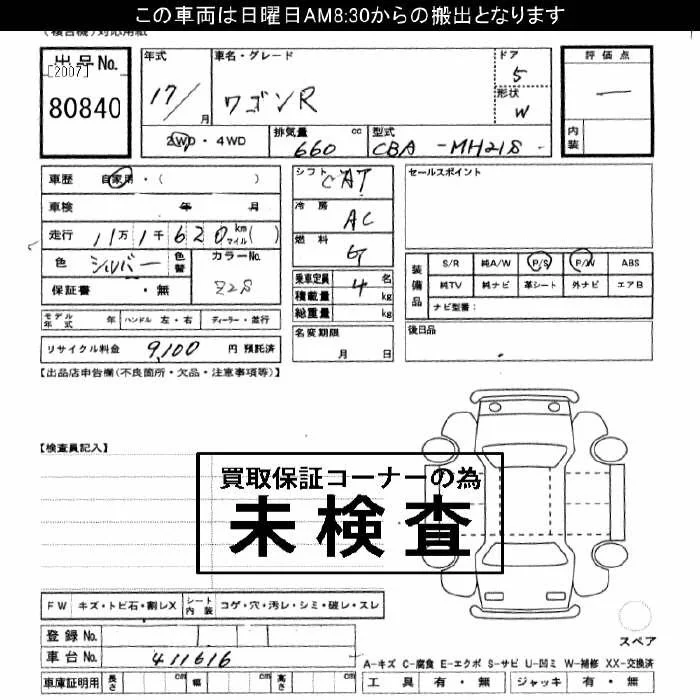 この車両は日曜日AM8:30からの搬出となります
出品No.
[2007]
80840
年式
17/
月
車名・グレード
ワゴンR
ドア
5
形状
W
評価点
—
内装
2WD・4WD
排気量
cc
660
型式
CBA -MH21S
車歴 自家用・( )
車検 年 月
走行 11万 1千 620 km マイル( )
色 シルバー 色替
カラーNo.
Z2S
保証書 ・無
シフト
CAT
冷房
AC
燃料
G
乗車定員 4 名
積載量 kg
総重量 kg
セールスポイント
装備品
S/R 純A/W P/S P/W ABS
純TV 純ナビ 革シート 外ナビ エアB
ナビ型番:
モデル年式 年 ハンドル 左・右 ディーラー・並行
名変期限
月 日
後日品
リサイクル料金 9,100 円 預託済
【出品店申告欄(不良箇所・欠品・注意事項等)】
【検査員記入】
買取保証コーナーの為
未検査
FW キズ・トビ石・割レX シート内装 コゲ・穴・汚レ・シミ・破レ・スレ
登録No.
車台No. 411616
車庫証明用 長さ cm 幅 cm 高さ cm
スペア
A-キズ C-腐食 E-エクボ S-サビ U-凹ミ W-補修 XX-交換済
工具 有・無 ジャッキ 有・無